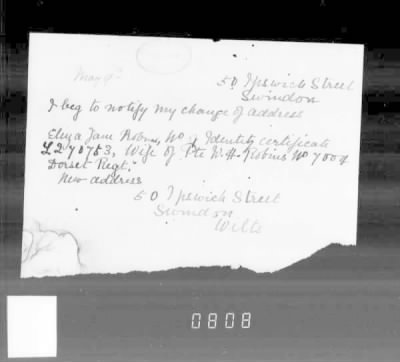 May 9th
50 Ipswich Street
Swindon
I beg to notify my change of address
Eliza Jane Robins, No of Identity certificate
L270753, Wife of Pte W.H. Robins No 7004
Dorset Regt.
New address
50 Ipswich Street
Swindon
Wilts
0808